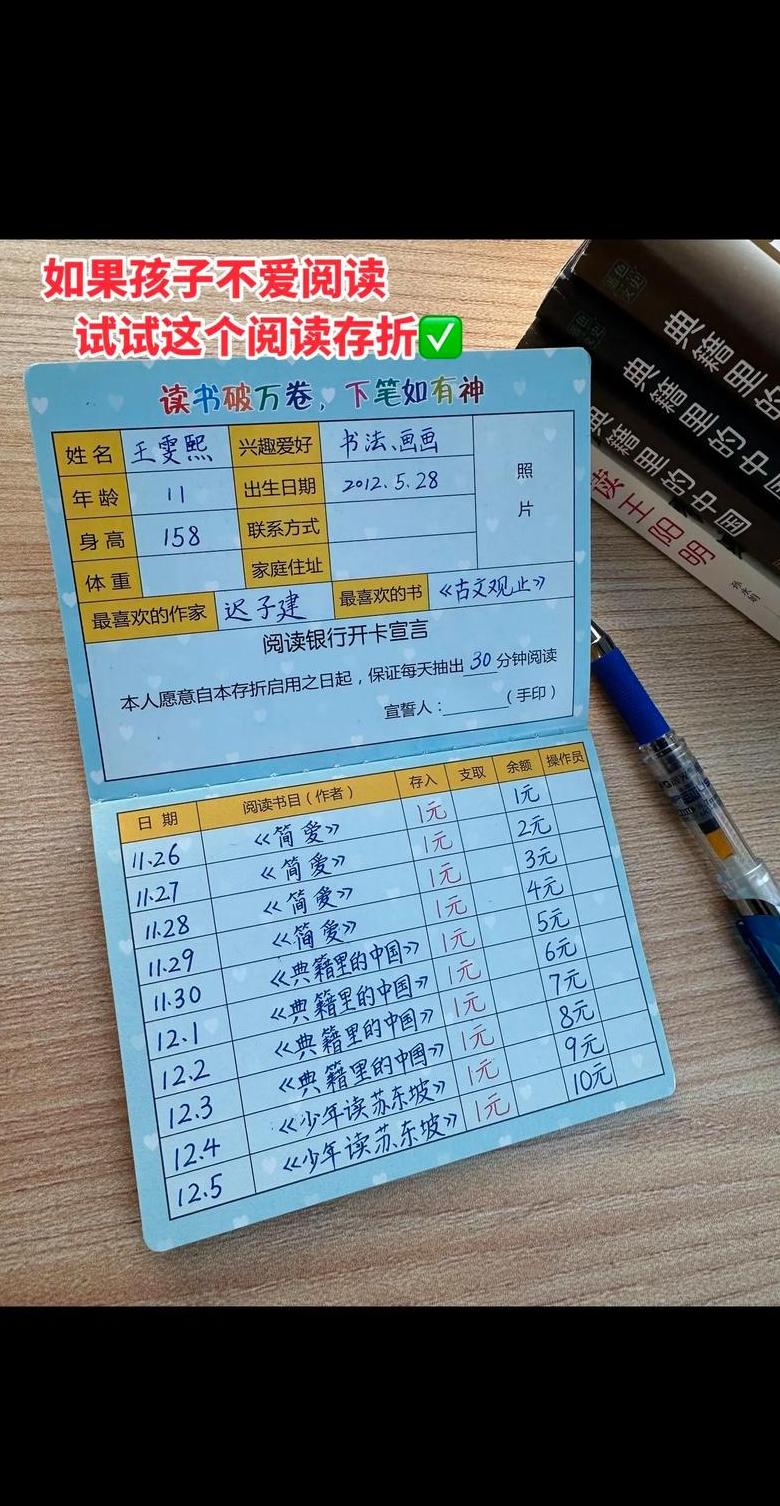 如果孩子不爱阅读
试试这个阅读存折✅
读书破万卷，下笔如有神
姓名 王雯熙 兴趣爱好 书法、画画 照片
年龄 11 出生日期 2012.5.28
身高 158 联系方式
体重 家庭住址
最喜欢的作家 迟子建 最喜欢的书 《古文观止》
阅读银行开卡宣言
本人愿意自本存折启用之日起，保证每天抽出 30 分钟阅读
宣誓人：______（手印）
日期 阅读书目（作者） 存入 支取 余额 操作员
11.26 《简爱》 1元 1元
11.27 《简爱》 1元 2元
11.28 《简爱》 1元 3元
11.29 《简爱》 1元 4元
11.30 《典籍里的中国》 1元 5元
12.1 《典籍里的中国》 1元 6元
12.2 《典籍里的中国》 1元 7元
12.3 《典籍里的中国》 1元 8元
12.4 《少年读苏东坡》 1元 9元
12.5 《少年读苏东坡》 1元 10元
典籍里的
典籍里的中
典籍里的中国
读王阳明